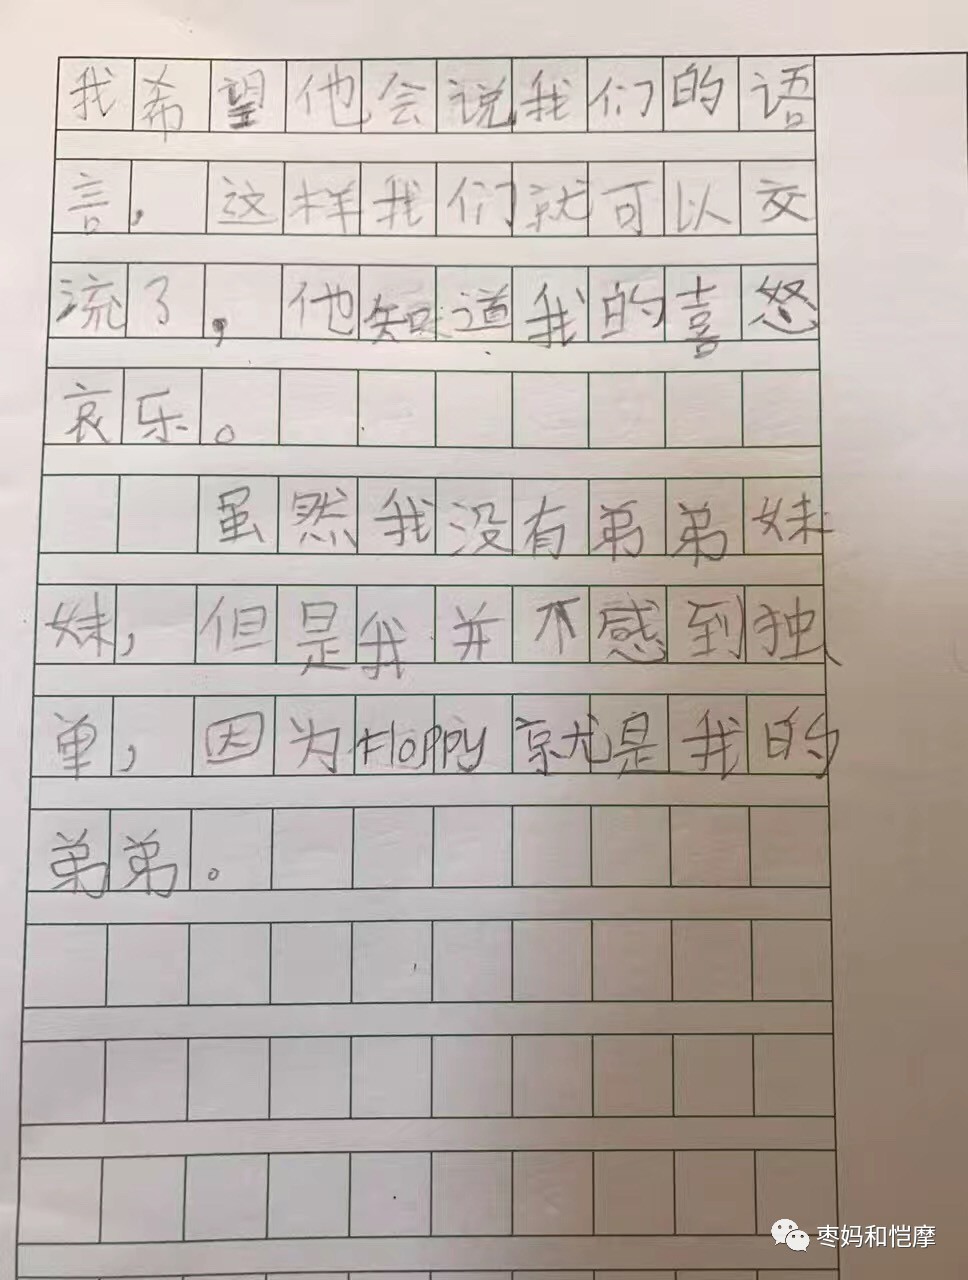 我希望他会说我们的语
言，这样我们就可以交
流了，他知道我的喜怒
哀乐。
虽然我没有弟弟妹
妹，但是我并不感到独
单，因为Floppy就是我的
弟弟。
枣妈和恺摩